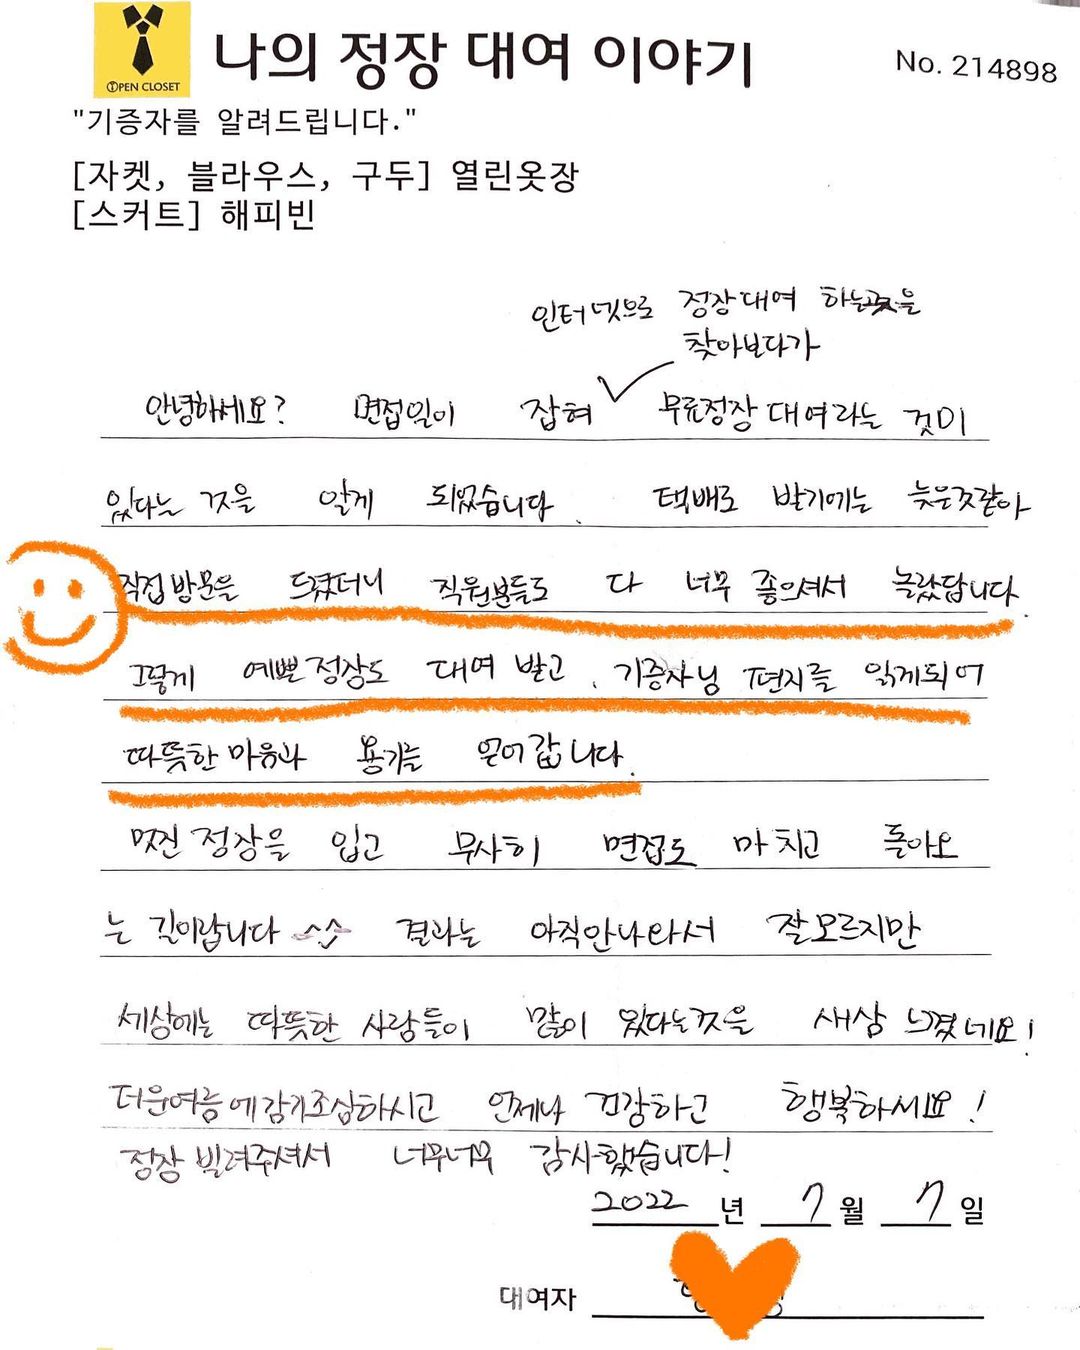 OPEN CLOSET
나의 정장 대여 이야기
No. 214898
"기증자를 알려드립니다."
[자켓, 블라우스, 구두] 열린옷장
[스커트] 해피빈
인터넷으로 정장대여 하는곳을
찾아보다가
안녕하세요? 면접일이 잡혀 무료정장 대여라는 것이
있다는 것을 알게 되었습니다. 택배로 받기에는 늦은것같아
직접방문을 드렸더니 직원분들도 다 너무 좋으셔서 놀랐답니다.
그렇게 예쁜정장도 대여 받고, 기증자님 편지를 읽게되어
따뜻한 마음과 용기를 얻어갑니다.
멋진 정장을 입고 무사히 면접도 마치고 돌아오
는 길이랍니다 ^^ 결과는 아직안나와서 잘모르지만
세상에는 따뜻한 사람들이 많이 있다는것을 새삼 느꼈네요!
더운여름에 감기조심하시고 언제나 건강하고 행복하세요!
정장 빌려주셔서 너무너무 감사했습니다!
2022년 7월 7일
대여자